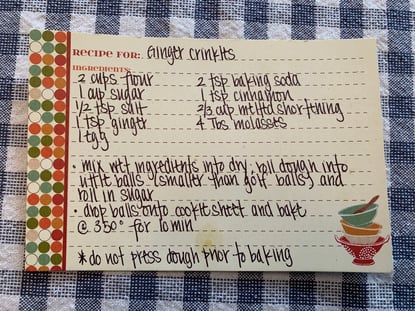 RECIPE FOR: Ginger Crinkles
INGREDIENTS:
2 cups flour 2 tsp baking soda
1 cup sugar 1 tsp cinnamon
1/2 tsp salt 2/3 cup melted shortening
1 tsp ginger 4 Tbs molasses
1 egg
• mix wet ingredients into dry, roll dough into
little balls (smaller than golf balls) and
roll in sugar
• drop balls onto cookie sheet and bake
@ 350° for 10 min
* do not press dough prior to baking